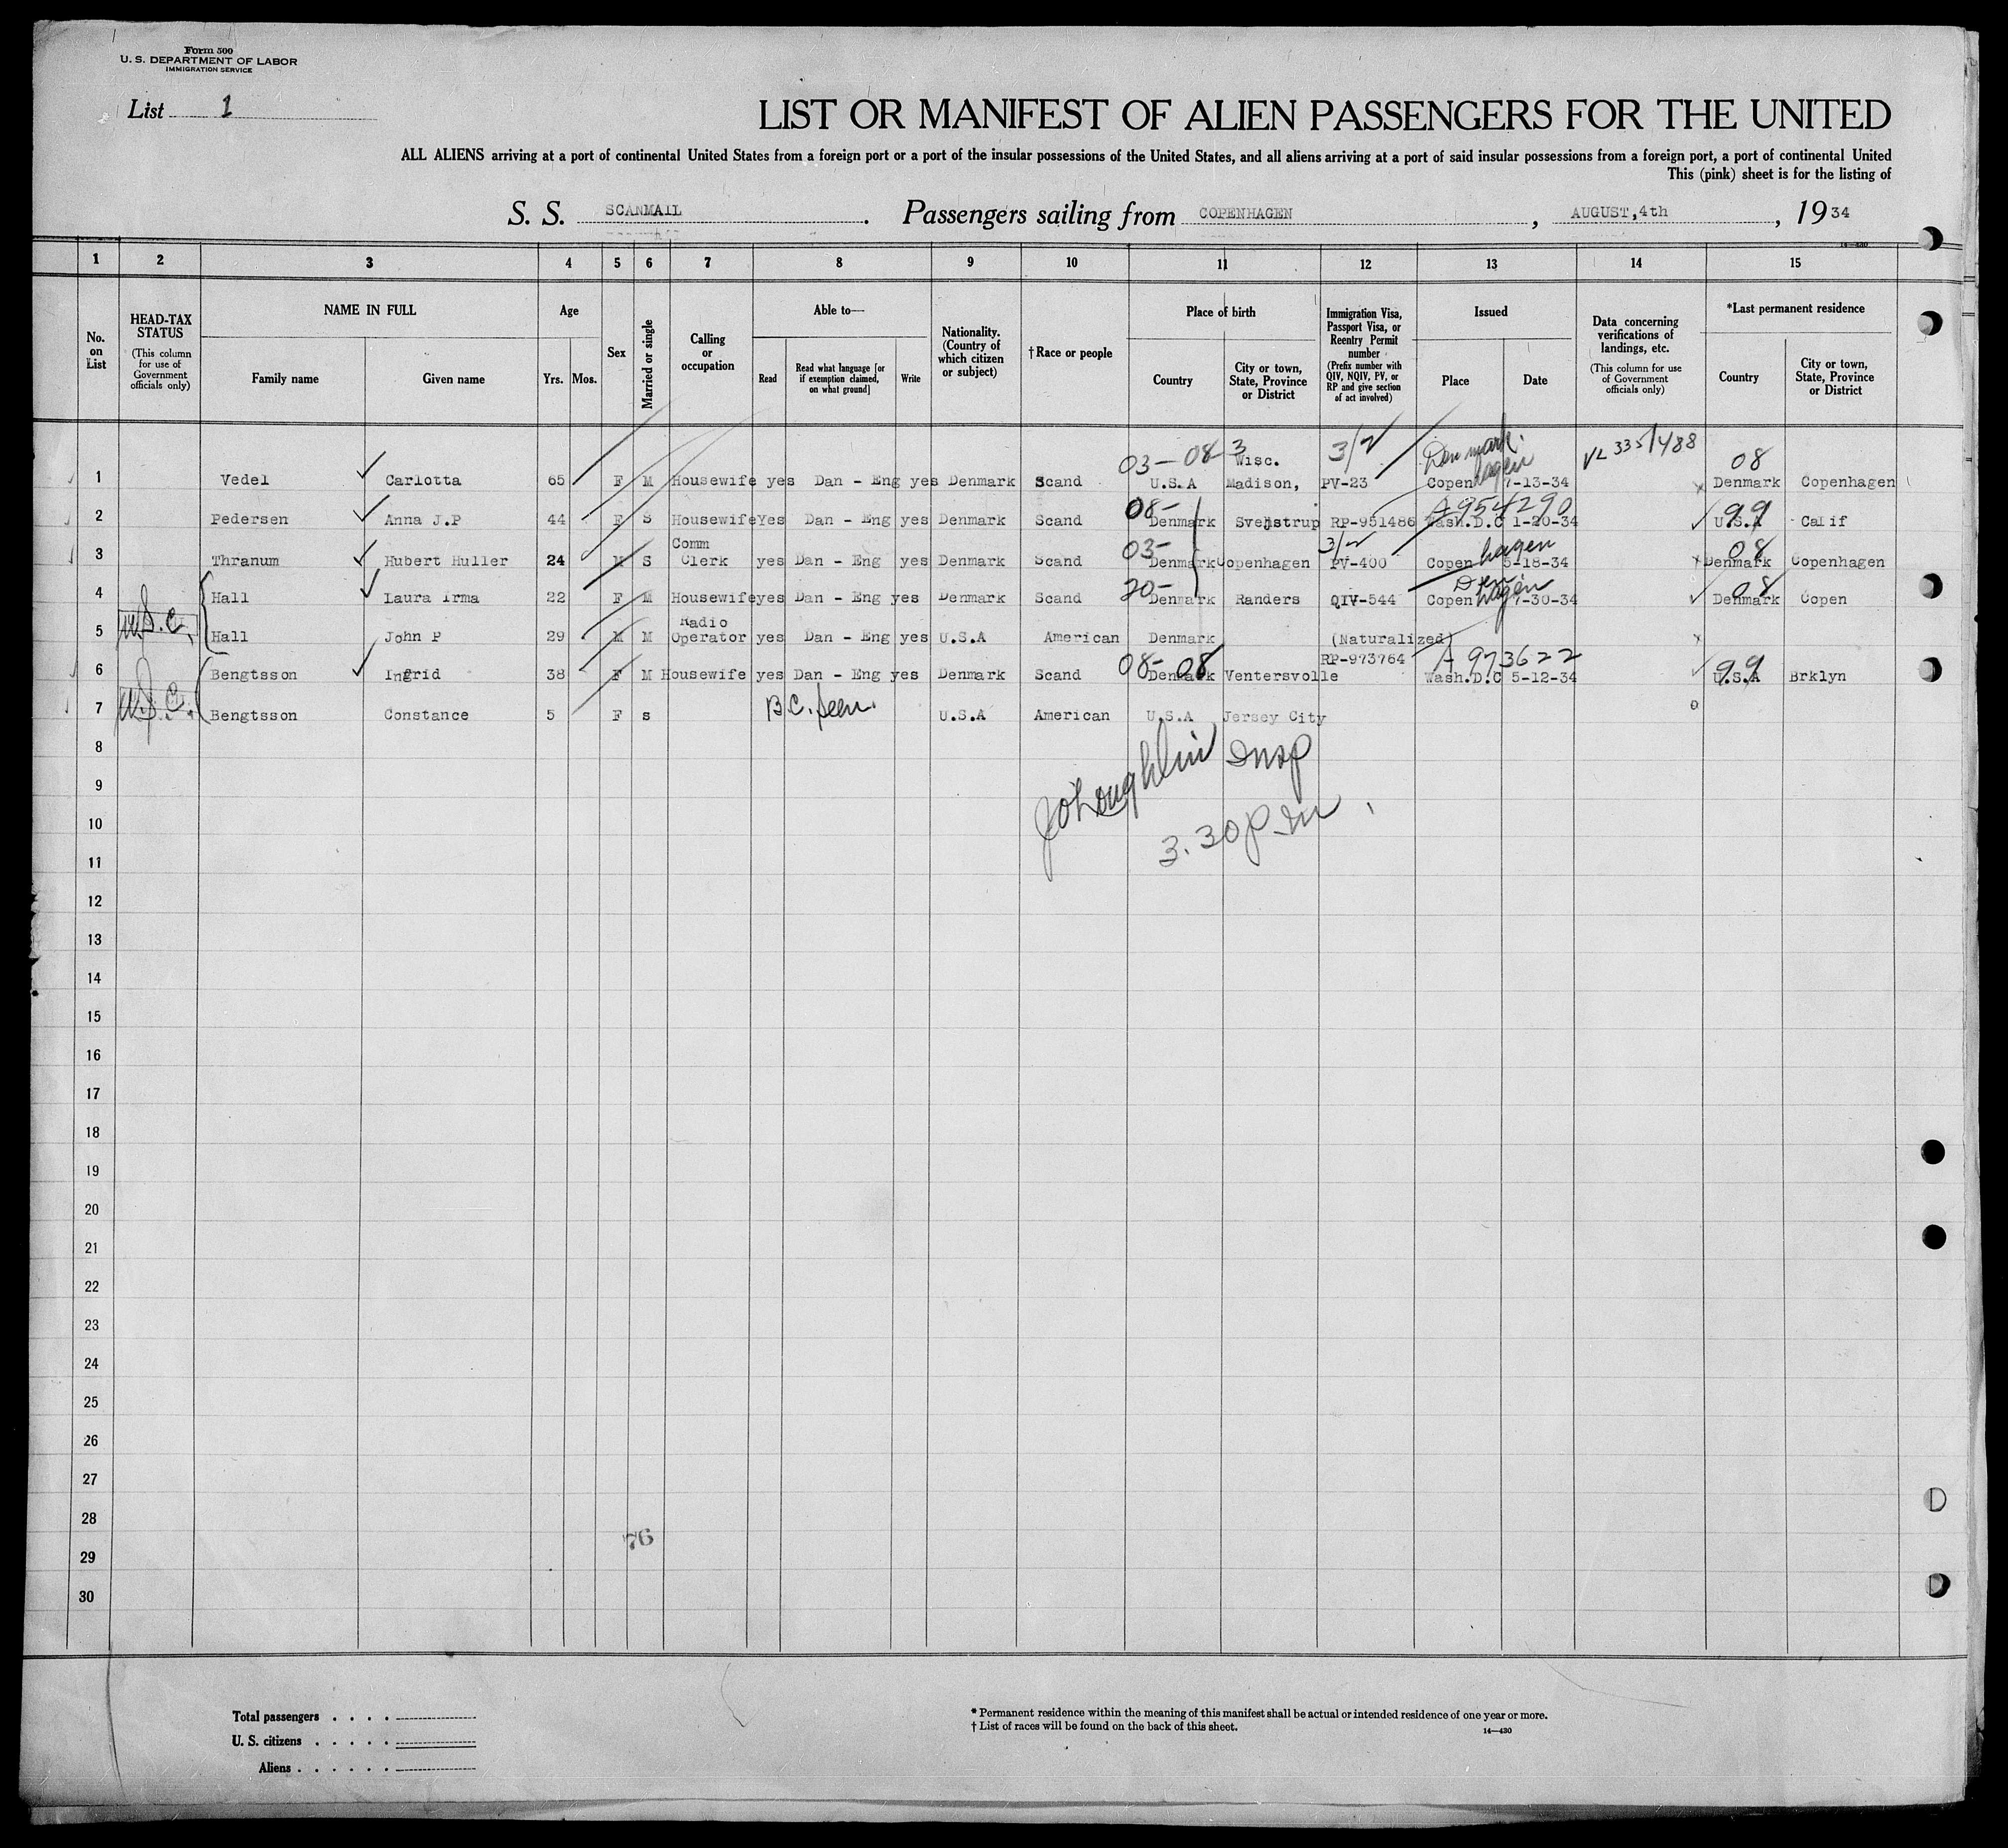 Form 500
U. S. DEPARTMENT OF LABOR
IMMIGRATION SERVICE
List 1
LIST OR MANIFEST OF ALIEN PASSENGERS FOR THE UNITED
ALL ALIENS arriving at a port of continental United States from a foreign port or a port of the insular possessions of the United States, and all aliens arriving at a port of said insular possessions from a foreign port, a port of continental United
This (pink) sheet is for the listing of
S. S. SCANMAIL. Passengers sailing from COPENHAGEN, AUGUST,4th, 1934
14—430
1 2 3 4 5 6 7 8 9 10 11 12 13 14 15
No. on List
HEAD-TAX STATUS
(This column for use of Government officials only)
NAME IN FULL
Family name Given name
Age
Yrs. Mos.
Sex
Married or single
Calling or occupation
Able to—
Read
Read what language [or if exemption claimed, on what ground]
Write
Nationality. (Country of which citizen or subject)
†Race or people
Place of birth
Country
City or town, State, Province or District
Immigration Visa, Passport Visa, or Reentry Permit number
(Prefix number with QIV, NQIV, PV, or RP and give section of act involved)
Issued
Place Date
Data concerning verifications of landings, etc.
(This column for use of Government officials only)
*Last permanent residence
Country
City or town, State, Province or District
03-08 3 Wisc. 3/2 Denmark VL 335/488 08
1 Vedel Carlotta 65 F M Housewife yes Dan - Eng yes Denmark Scand U.S.A Madison, PV-23 Copenhagen 7-13-34 Denmark Copenhagen
08- A954290 99
2 Pedersen Anna J.P 44 F S Housewife Yes Dan - Eng yes Denmark Scand Denmark Svenstrup RP-951486 Wash.D.C 1-20-34 U.S.A Calif
Comm 03- 3/2 08
3 Thranum Hubert Huller 24 M S Clerk yes Dan - Eng yes Denmark Scand Denmark Copenhagen PV-400 Copenhagen 5-18-34 Denmark Copenhagen
20- Den 08
4 Hall Laura Irma 22 F M Housewife yes Dan - Eng yes Denmark Scand Denmark Randers QIV-544 Copenhagen 7-30-34 Denmark Copen
U.S.C. Radio
5 Hall John P 29 M M Operator yes Dan - Eng yes U.S.A American Denmark (Naturalized)
08- 08 RP-973764 A 973622 99
6 Bengtsson Ingrid 38 F M Housewife yes Dan - Eng yes Denmark Scand Denmark Ventersvolle Wash.D.C 5-12-34 U.S.A Brklyn
U.S.C.
7 Bengtsson Constance 5 F s B.C. seen. U.S.A American U.S.A Jersey City
8
JO'Loughlin Insp
9
10 3.30 P.M.
11
12
13
14
15
16
17
18
19
20
21
22
23
24
25
26
27
28
76
29
30
Total passengers
U. S. citizens
Aliens
* Permanent residence within the meaning of this manifest shall be actual or intended residence of one year or more.
† List of races will be found on the back of this sheet.
14—430